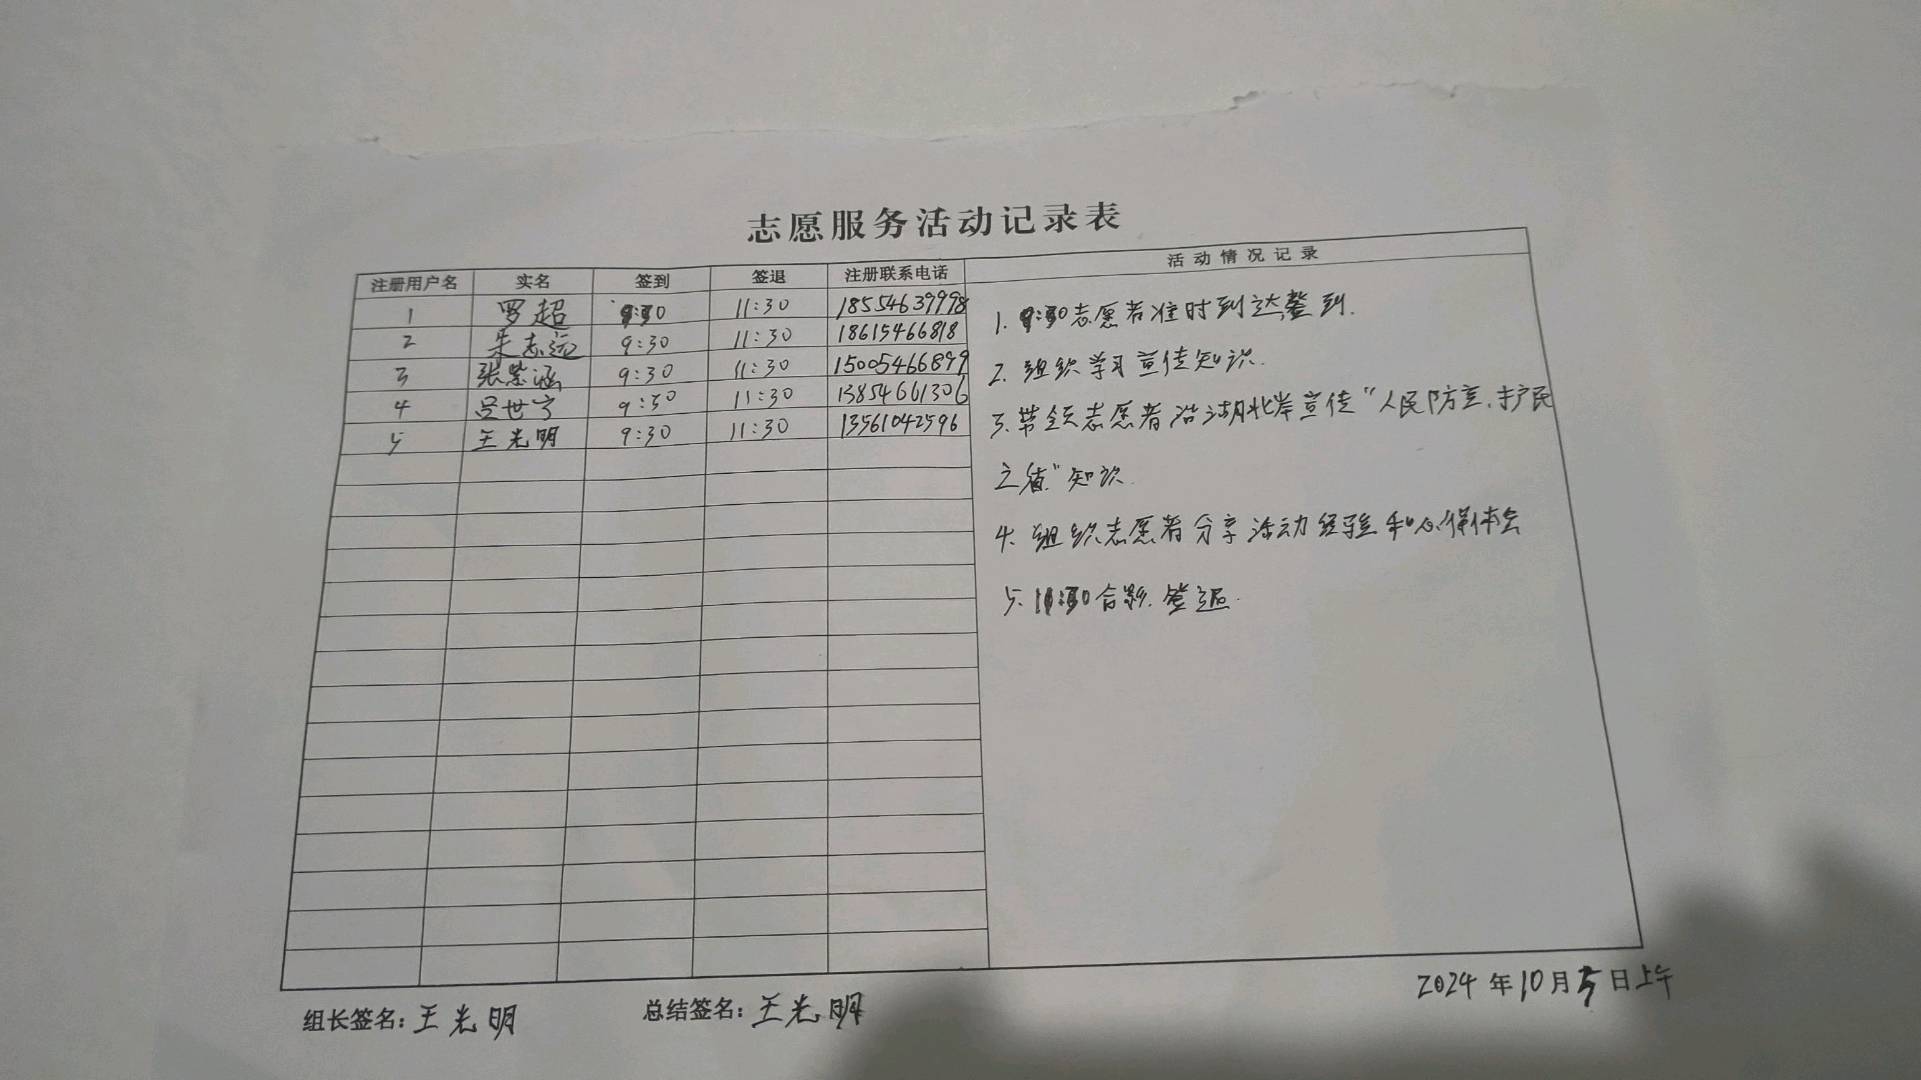 志愿服务活动记录表
注册用户名 实名 签到 签退 注册联系电话 活动情况记录
1 罗超 9:30 11:30 18554639998
2 朱志远 9:30 11:30 18615466818
3 张紫涵 9:30 11:30 15005466899
4 吕世宁 9:30 11:30 13854661306
5 王光明 9:30 11:30 13561042596
1. 9:30志愿者准时到达,签到.
2. 组织学习宣传知识.
3. 带领志愿者沿湖北岸宣传“人民防空.护民
之盾”知识.
4. 组织志愿者分享活动经验和心得体会
5. 11:30合影.签退.
组长签名:王光明 总结签名:王光明 2024年10月5日上午